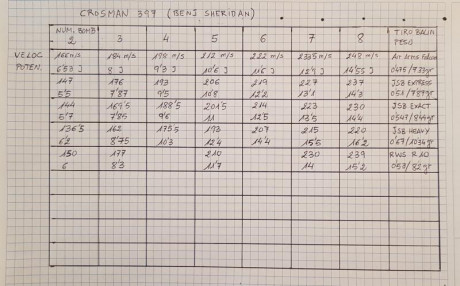 CROSMAN 397 (BENJ SHERIDAN)
NUM. BOMB TIRO BALIN
2 3 4 5 6 7 8 PESO
VELOC 166 m/s 184 m/s 198 m/s 212 m/s 222 m/s 235 m/s 248 m/s Air Arms
POTEN. 6'53 J 8 J 9'3 J 10'6 J 12'9 J 14'55 J 0'475/7'33 gr
147 176 193 206 219 227 237 JSB EXPRESS
5'5 7'87 9'5 10'8 12'2 13'1 14'3 0'51/7'87 gr
144 169'5 188'5 201'5 214 223 230 JSB EXACT
5'7 7'85 9'6 11 12'5 13'5 14'4 0'547/8'44 gr
136'5 162 175'5 193 207 215 220 JSB HEAVY
6'2 8'75 10'3 12'4 14'4 15'5 16'2 0'67/10'34 gr
150 177 210 230 239 RWS R10
6 8'3 11'7 14 15'2 0'53/8'2 gr